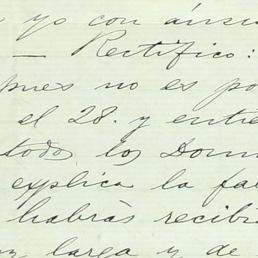 yo con ánsi
— Rectifico:
pues no es po
el 28. y entre
todo, los Dom
explica la fal
habrás recibi
larga y de